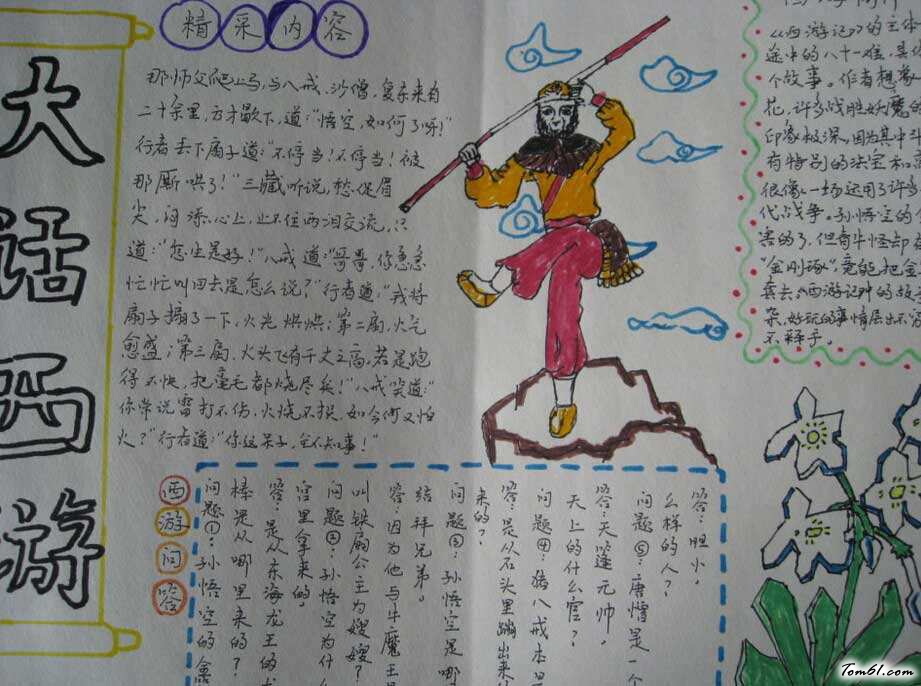 大话西游
精采内容
那师父爬上马,与八戒,沙僧,复东来有
二十余里,方才歇下,道:"悟空,如何了呀!"
行者丢下扇子道:"不停当!不停当!被
那厮哄了!"三藏听说,愁促眉
尖,闷添心上,止不住两泪交流,只
道:"怎生是好!"八戒道:"哥哥,你急急
忙忙叫回去是怎么说?"行者道:"我将
扇子搧了一下,火光烘烘;第二扇,火气
愈盛;第三扇,火头飞有千丈之高,若是跑
得不快,把毫毛都烧尽矣!"八戒笑道:"
你常说雷打不伤,火烧不损,如今何又怕
火?"行者道:"你这呆子,全不知事!"
《西游记》的主体
途中的八十一难,
个故事。作者想
花,许多战胜妖魔
印象极深。因为其中
有特别的法宝和
很像一场运用了许多
代战争。孙悟空的
害的了,但青牛怪却
"金刚琢",竟能把金
套去。《西游记》中的故
杂,好玩的事情层出不穷
不释手。
西游问答
问题①:孙悟空的金
棒是从哪里来的?
答:是从东海龙王的
宫里拿来的。
问题②:孙悟空为什
叫铁扇公主为嫂嫂?
答:因为他与牛魔王
结拜兄弟。
问题③:孙悟空是哪
来的?
答:是从石头里蹦出来
问题④:猪八戒本是
天上的什么官?
答:天篷元帅。
问题⑤:唐僧是一个
么样的人?
答:胆小。
Tom61.com